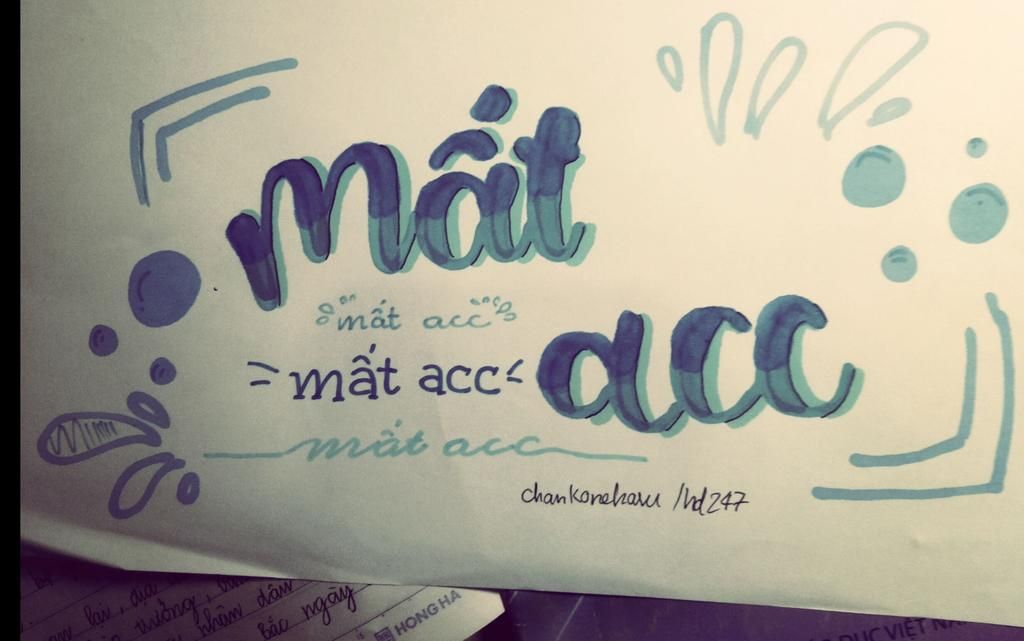 mất
acc
mất acc
mất acc
mất acc
chankoneharu /hd247
lai, địa
trường,
nhân dân
Bắc ngày
HONG HA
DỤC VIỆT NA